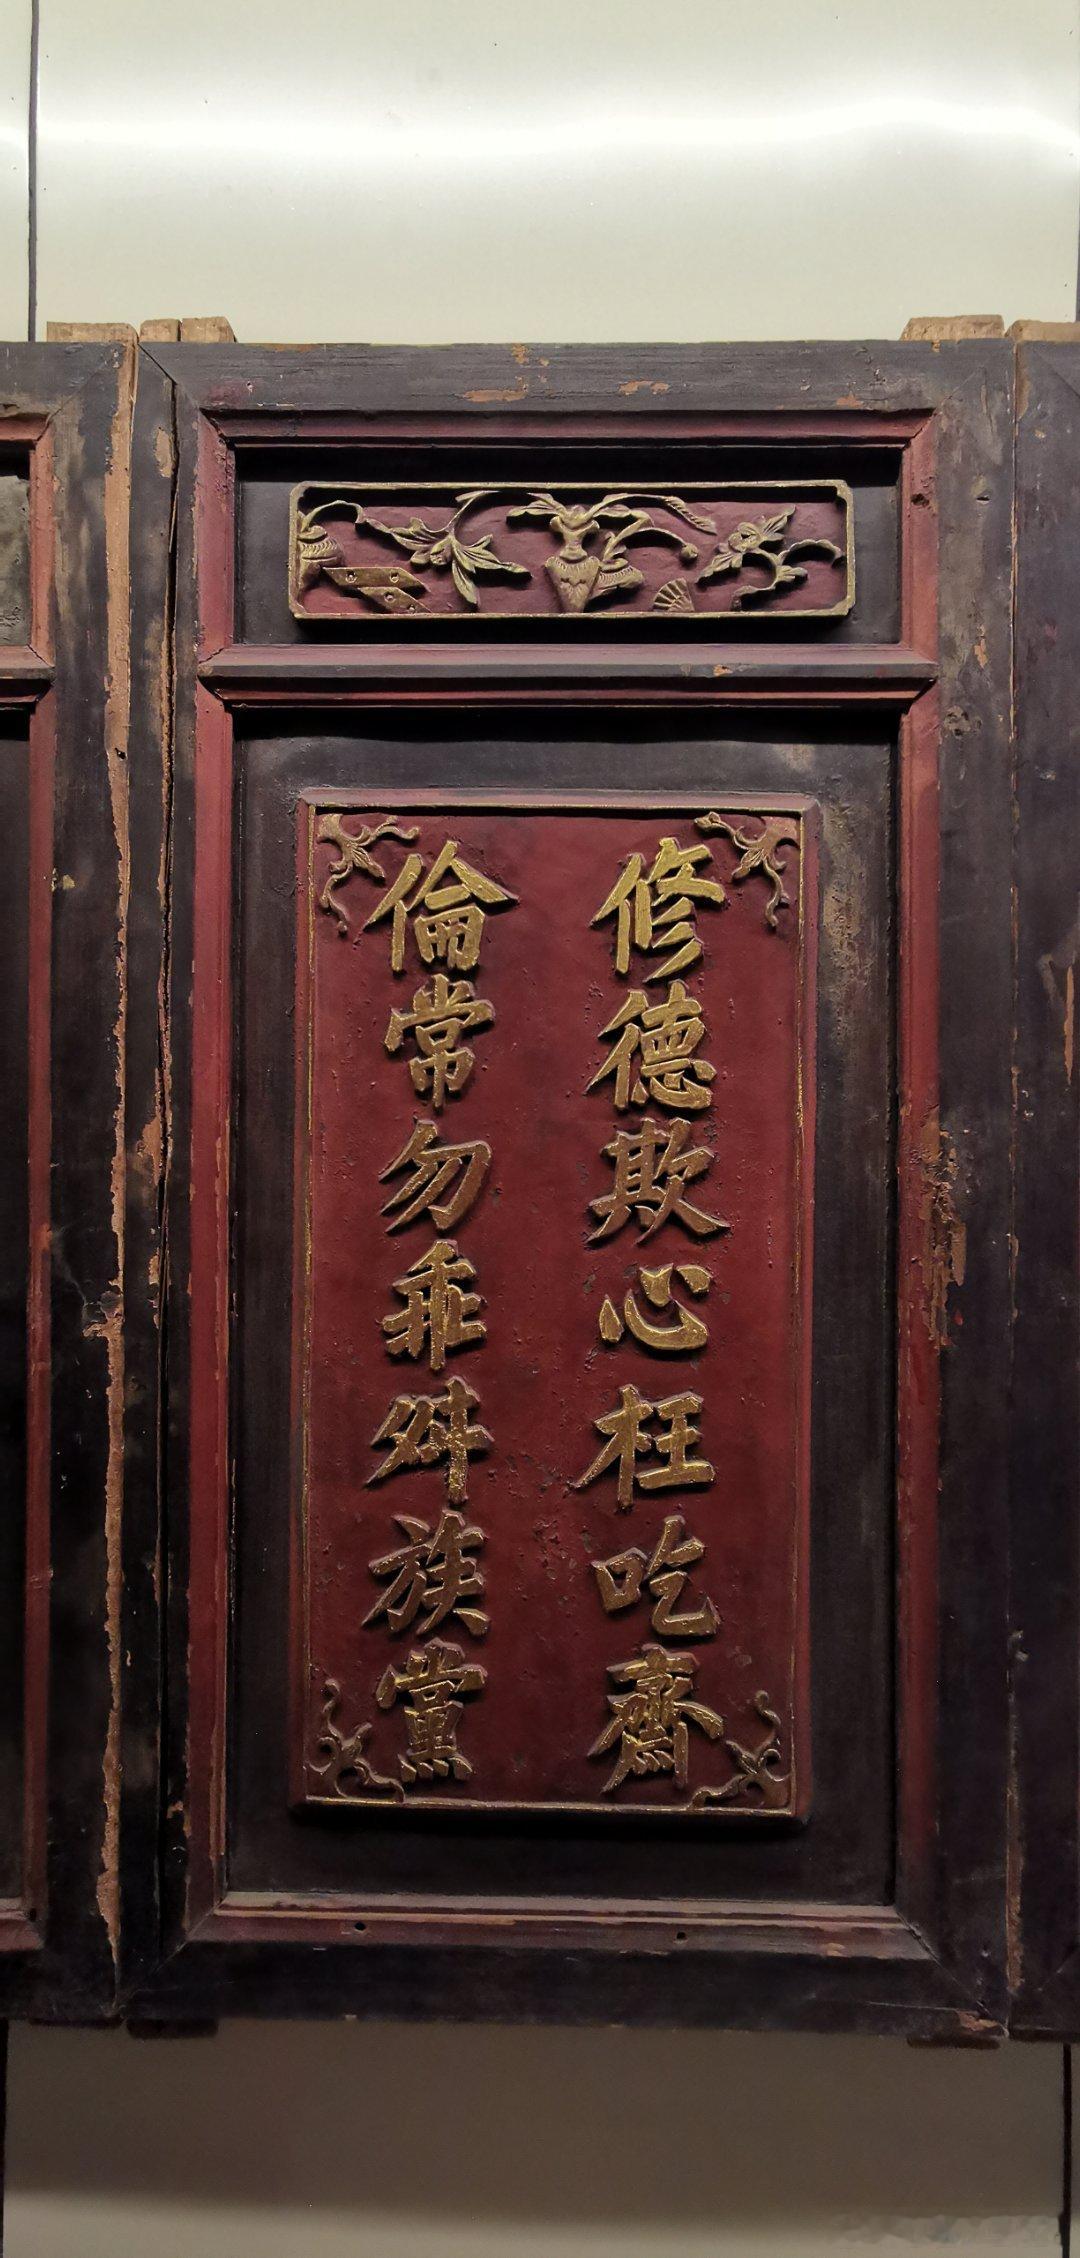 修德欺心枉吃齋
倫常勿乖舛族黨